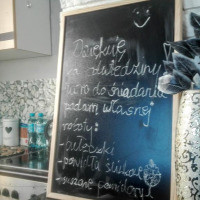 Dziękuję
za odwiedziny
Jutro do śniadania
podam własnej
roboty:
- bułeczki
- powidła śliwk
- suszone pomidory